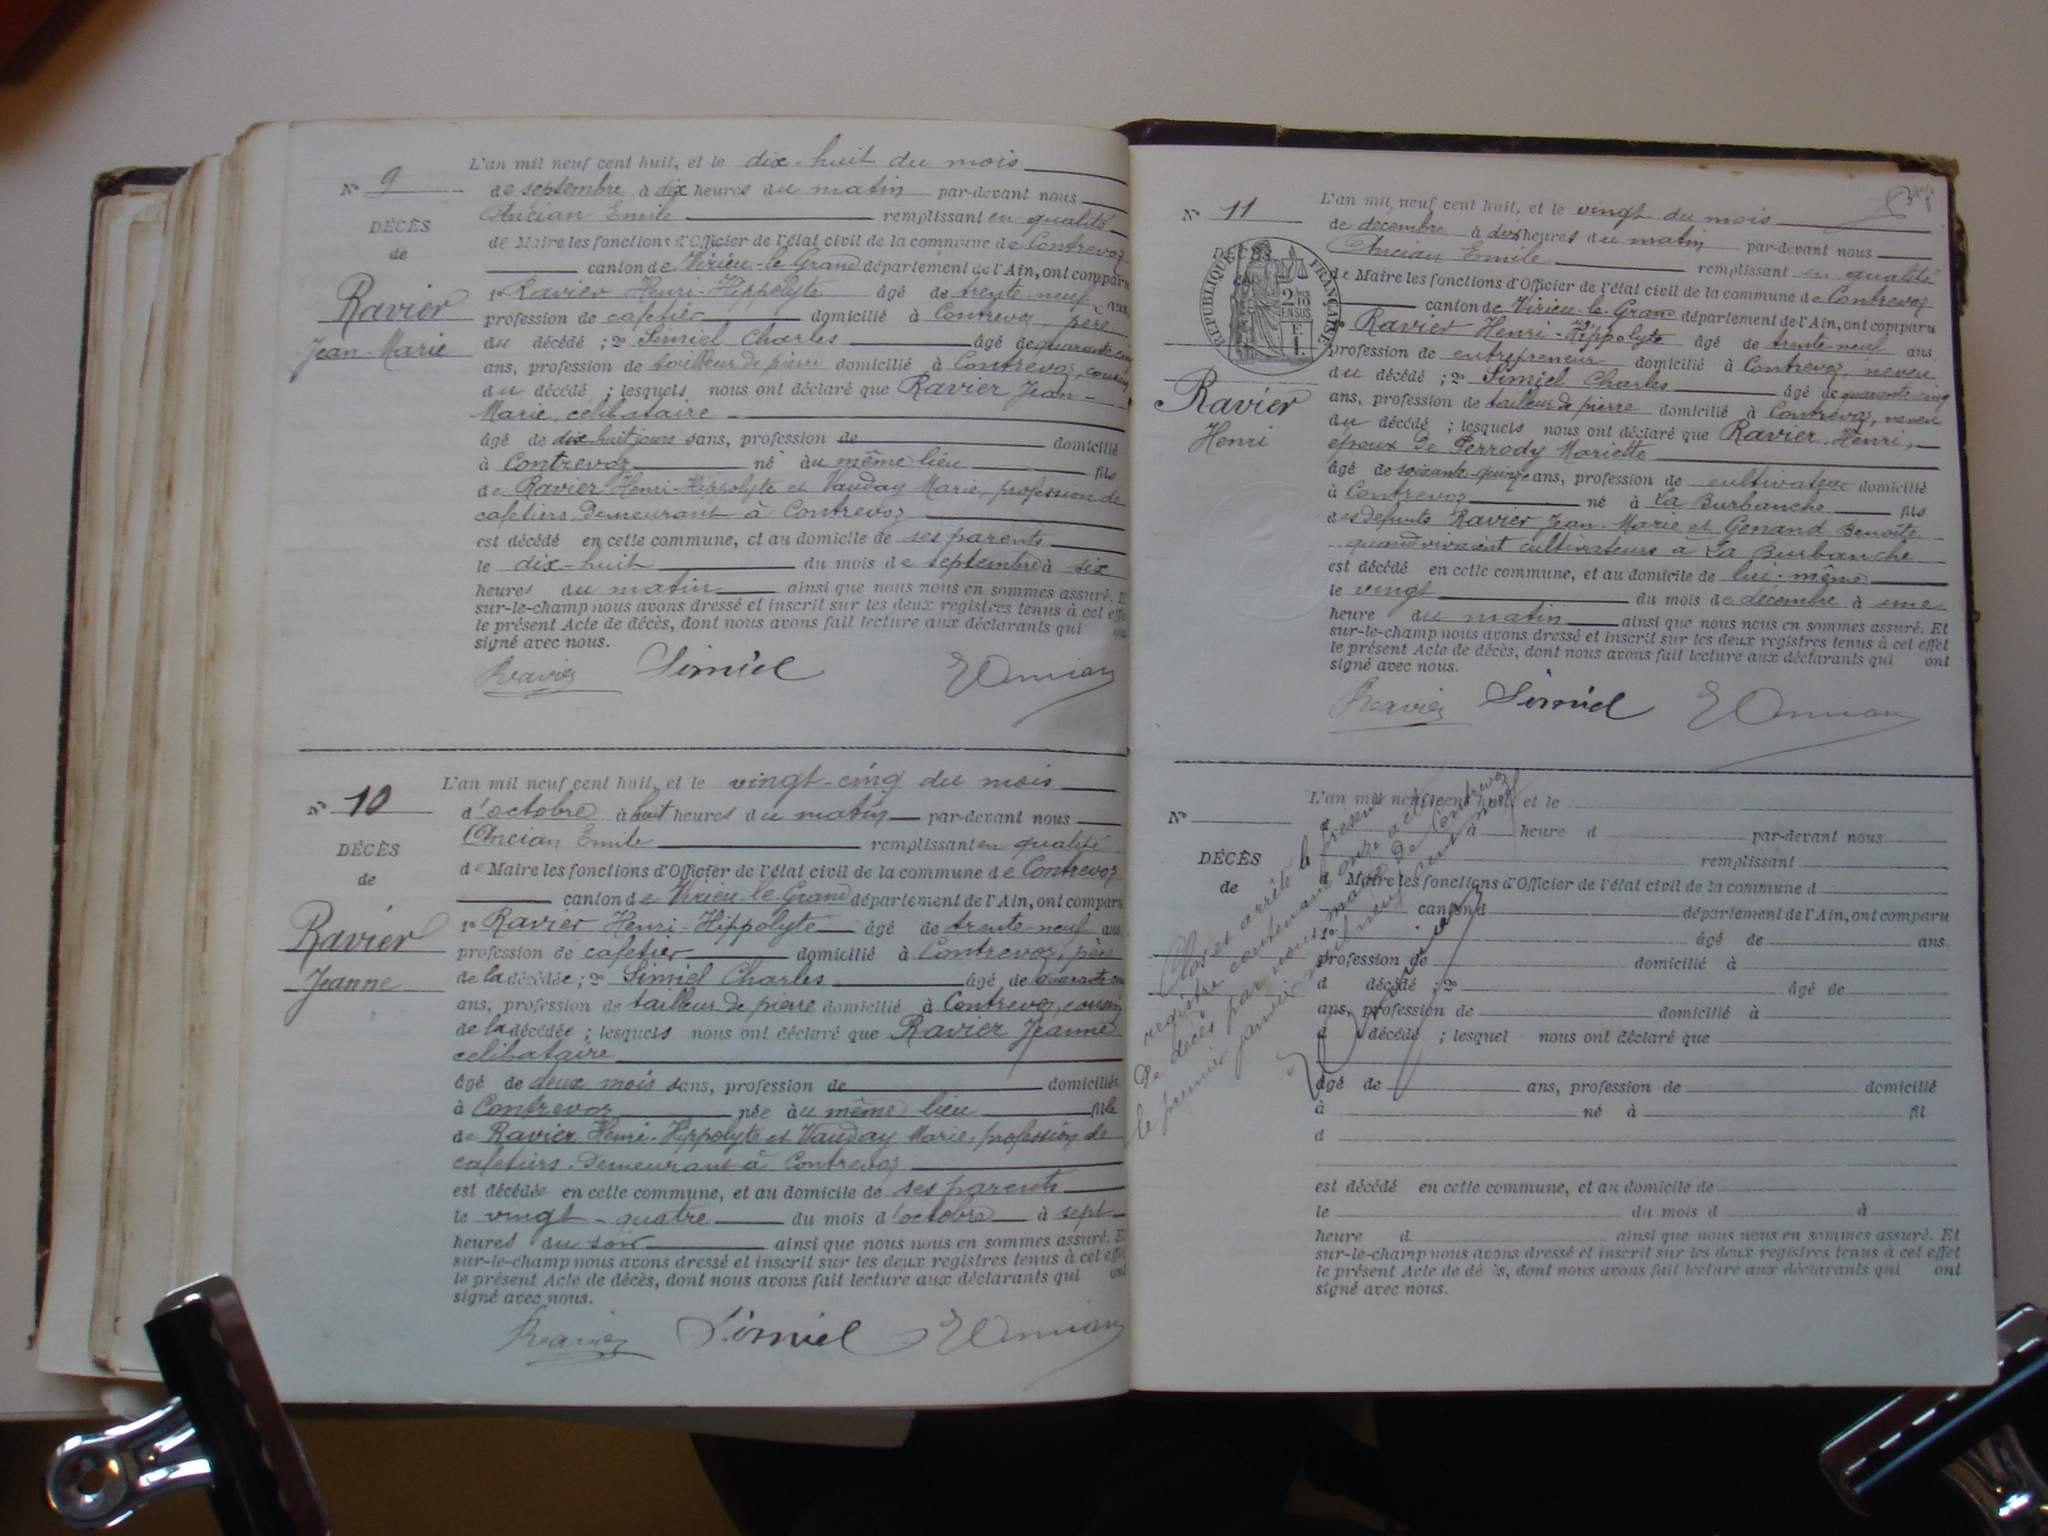 L'an mil neuf cent huit, et le dix-huit du mois
N° 9
de septembre à dix heures du matin par-devant nous
Ancian Emile remplissant en qualité
DÉCÈS
de Maire les fonctions d'Officier de l'état civil de la commune de Contrevoz
de
canton de Virieu-le-Grand département de l'Ain, ont comparu
1° Ravier Henri-Hippolyte âgé de trente-neuf ans,
Ravier
profession de cafetier domicilié à Contrevoz, père
Jean-Marie
du décédé ; 2° Simiel Charles âgé de quarante-cinq
ans, profession de tailleur de pierre domicilié à Contrevoz, cousin
du décédé ; lesquels nous ont déclaré que Ravier Jean-
Marie, célibataire
âgé de dix-huit jours ans, profession de domicilié
à Contrevoz né au même lieu fils
de Ravier Henri-Hippolyte et Vauday Marie, profession de
cafetiers, demeurant à Contrevoz
est décédé en cette commune, et au domicile de ses parents
le dix-huit du mois de septembre à six
heures du matin ainsi que nous nous en sommes assuré. Et
sur-le-champ nous avons dressé et inscrit sur les deux registres tenus à cet effet
le présent Acte de décès, dont nous avons fait lecture aux déclarants qui ont
signé avec nous.
Ravier Simiel E Ancian
L'an mil neuf cent huit, et le vingt-cinq du mois
N° 10
d'octobre à huit heures du matin par-devant nous
Ancian Emile remplissant en qualité
DÉCÈS
de Maire les fonctions d'Officier de l'état civil de la commune de Contrevoz
de
canton de Virieu-le-Grand département de l'Ain, ont comparu
Ravier
1° Ravier Henri-Hippolyte âgé de trente-neuf ans,
profession de cafetier domicilié à Contrevoz, père
Jeanne
de la décédée ; 2° Simiel Charles âgé de quarante-cinq
ans, profession de tailleur de pierre domicilié à Contrevoz, cousin
de la décédée ; lesquels nous ont déclaré que Ravier Jeanne
célibataire
âgé de deux mois ans, profession de domiciliée
à Contrevoz née au même lieu fille
de Ravier Henri-Hippolyte et Vauday Marie, profession de
cafetiers, demeurant à Contrevoz
est décédée en cette commune, et au domicile de ses parents
le vingt-quatre du mois d'octobre à sept
heures du soir ainsi que nous nous en sommes assuré. Et
sur-le-champ nous avons dressé et inscrit sur les deux registres tenus à cet effet
le présent Acte de décès, dont nous avons fait lecture aux déclarants qui ont
signé avec nous.
Ravier Simiel E Ancian
L'an mil neuf cent huit, et le vingt du mois
N° 11
de décembre à dix heures du matin par-devant nous
DÉCÈS
Ancian Emile remplissant en qualité
RÉPUBLIQUE FRANÇAISE
2/10 EN SUS
F. 1.
de Maire les fonctions d'Officier de l'état civil de la commune de Contrevoz
canton de Virieu-le-Grand département de l'Ain, ont comparu
Ravier Henri-Hippolyte âgé de trente-neuf ans,
profession de entrepreneur domicilié à Contrevoz, neveu
Ravier
du décédé ; 2° Simiel Charles âgé de quarante-cinq
Henri
ans, profession de tailleur de pierre domicilié à Contrevoz, neveu
du décédé ; lesquels nous ont déclaré que Ravier Henri,
époux de Perrody Mariette
âgé de soixante-quinze ans, profession de cultivateur domicilié
à Contrevoz né à La Burbanche fils
des défunts Ravier Jean-Marie et Genand Benoîte
quand vivaient cultivateurs à La Burbanche
est décédé en cette commune, et au domicile de lui-même
le vingt du mois de décembre à une
heure du matin ainsi que nous nous en sommes assuré. Et
sur-le-champ nous avons dressé et inscrit sur les deux registres tenus à cet effet
le présent Acte de décès, dont nous avons fait lecture aux déclarants qui ont
signé avec nous.
Ravier Simiel E Ancian
L'an mil neuf cent huit, et le
N°
à heure d par-devant nous
remplissant
DÉCÈS
d Maire les fonctions d'Officier de l'état civil de la commune d
de
canton d département de l'Ain, ont comparu
1° âgé de ans.
profession de domicilié à
d décédé ; 2° âgé de
ans, profession de domicilié à
d décédé ; lesquel nous ont déclaré que
âgé de ans, profession de domicilié
à né à fil
d
est décédé en cette commune, et au domicile de
le du mois d à
heure d ainsi que nous nous en sommes assuré. Et
sur-le-champ nous avons dressé et inscrit sur les deux registres tenus à cet effet
le présent Acte de décès, dont nous avons fait lecture aux déclarants qui ont
signé avec nous.
Clos et arrêté le présent
registre contenant onze actes
de décès par nous maire de Contrevoz
le premier janvier mil neuf cent neuf
E Ancian